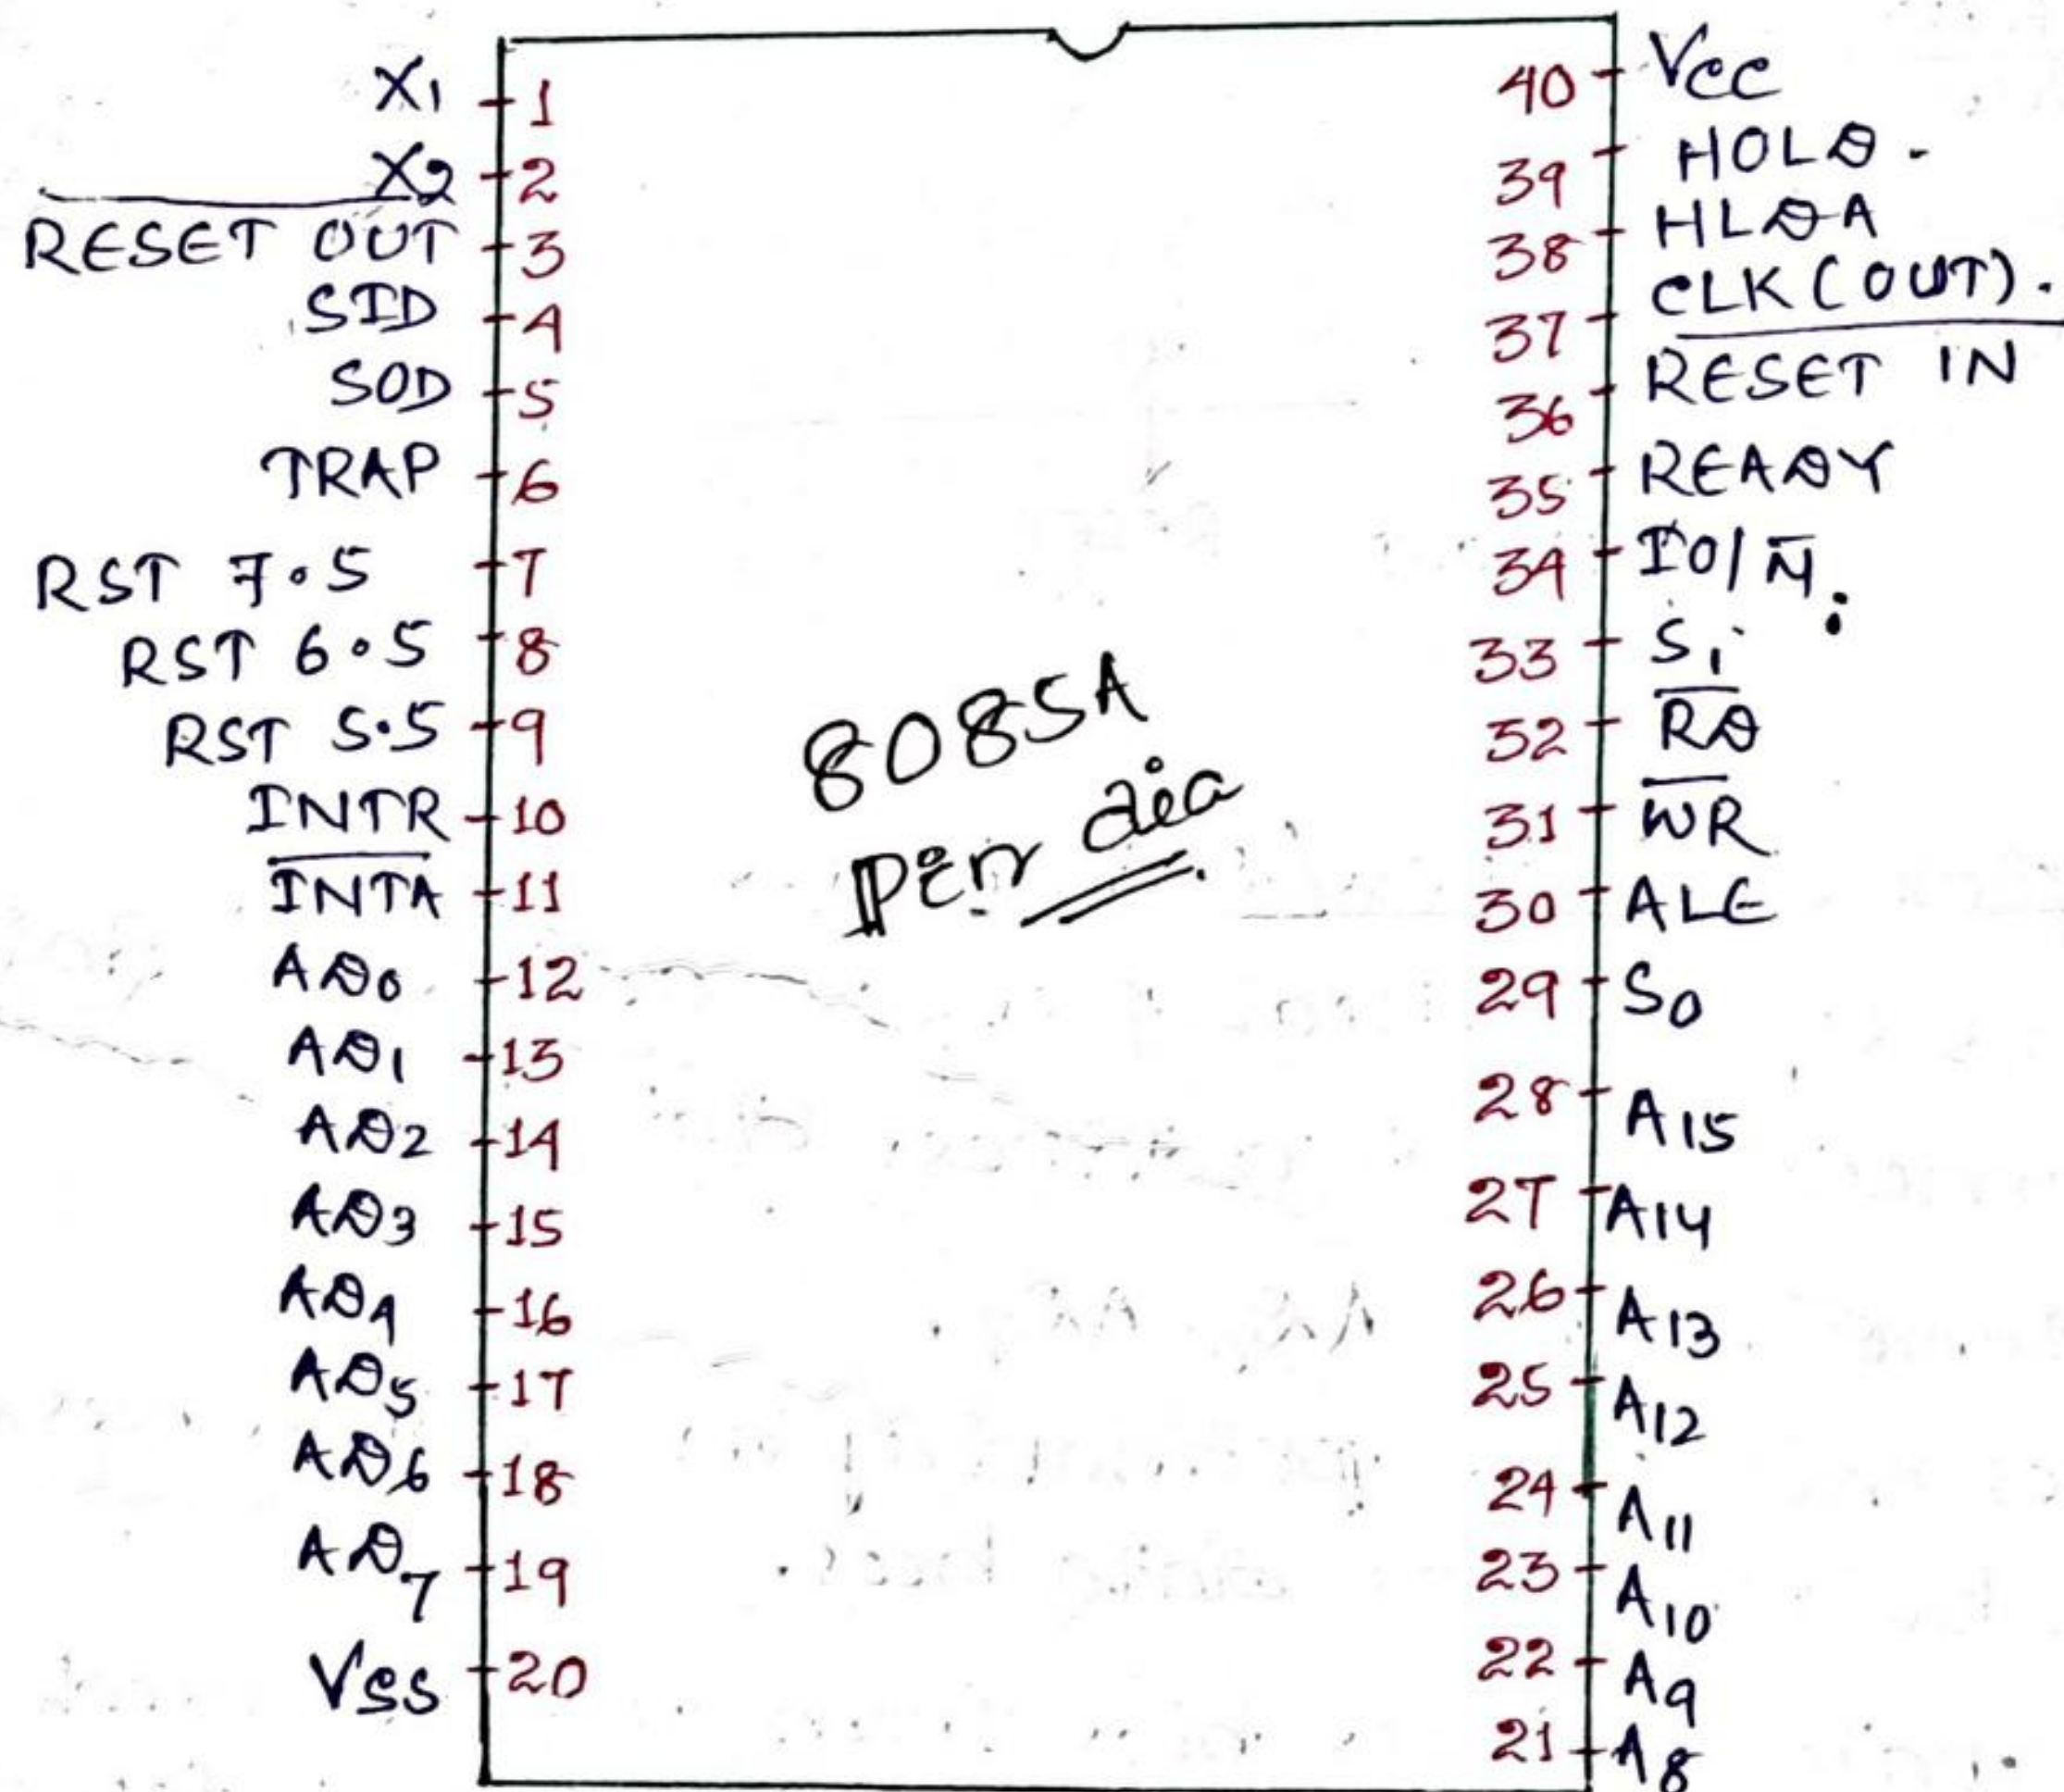 X1 1
X̅2̅ 2
RESET OUT 3
SID 4
SOD 5
TRAP 6
RST 7.5 7
RST 6.5 8
RST 5.5 9
INTR 10
I̅N̅T̅A̅ 11
AD0 12
AD1 13
AD2 14
AD3 15
AD4 16
AD5 17
AD6 18
AD7 19
VSS 20
8085A
Pin dia
40 VCC
39 HOLD.
38 HLDA
37 CLK (OUT).
36 R̅E̅S̅E̅T̅ I̅N̅
35 READY
34 IO/M̅.
33 S1
32 R̅D̅
31 W̅R̅
30 ALE
29 S0
28 A15
27 A14
26 A13
25 A12
24 A11
23 A10
22 A9
21 A8